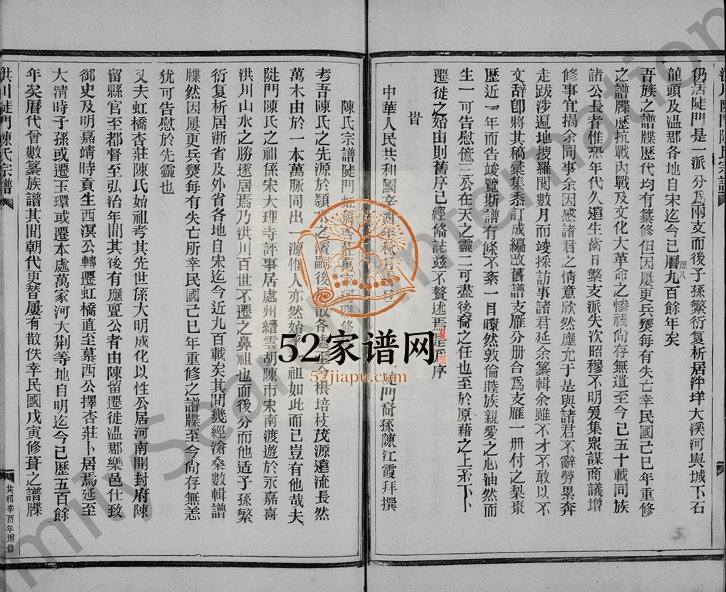 仍居陡門是一派分爲兩支而後子孫繁衍复析居泮垟大溪河與城下石
龍頭及溫郡各地自宋迄今已曆九百餘年矣
吾族之譜牒歷代均有纂修但因屢更兵燹每有失亡幸民國己巳年重修
之譜牒歷抗戰內戰及文化大革命之慘禍尚存無遺至今已五十載同族
諸公長者惟慇年代久遠生齒日繁支派失次昭穆不明爰集衆謀商議增
修事宜揭余同事余因感諸君之情意欣然應允于是與諸君不辭勞累奔
走跋涉遍地搜羅閱數月而竣採訪事諸君延余纂輯余雖不才不敢以不
文辭卽將其稿彙集叅訂成編改舊譜支雁分册合爲支雁一册付之梨棗
歷近一年而告竣覽斯譜有條不紊一目瞭然敦倫睦族親愛之心油然而
生一可告慰德三公在天之靈二可盡後裔之任也至於原藉之上系下卜
遷徙之始由則舊序已經脩誌玆不贅述焉是爲序
旹
中華人民共和國辛酉年秋
陡門裔孫陳江霞拜撰
陳氏宗譜陡門
考吾陳氏之先源於潁
萬木由於一本萬脈同出一源惟人亦然始祖如此而已豈有他哉夫
陡門陳氏之祖係宋大理寺評事居處州縉雲胡陳市宋南渡遊於永嘉喜
洪川山水之勝遂居焉乃洪川百世不遷之鼻祖也而後分而他適子孫繁
衍复析居浙省及外省各地自宋迄今近九百載矣其間幾經滄桑數輯譜
牒然因屢更兵燹每有失亡所幸民國己巳年重修之譜牒至今尚存無恙
猶可告慰於先靈也
又夫虹橋杏莊陳氏始祖考其先世係大明成化以性公居河南開封府陳
留縣官至都督至弘治年間其後有應寬公者由陳留遷徙溫郡樂邑仕致
御史及明嘉靖時貢生西溟公轉遷虹橋直至慕西公擇杏莊卜居焉延至
大清時子孫或遷玉環或遷本處萬家河大荆等地自明迄今已歷五百餘
年矣曆代曾數纂族譜其間朝代更替屢有散佚幸民國戊寅修葺之譜牒
洪川陡門陳氏宗譜
共和辛酉年增修
52家谱网
www.52jiapu.com